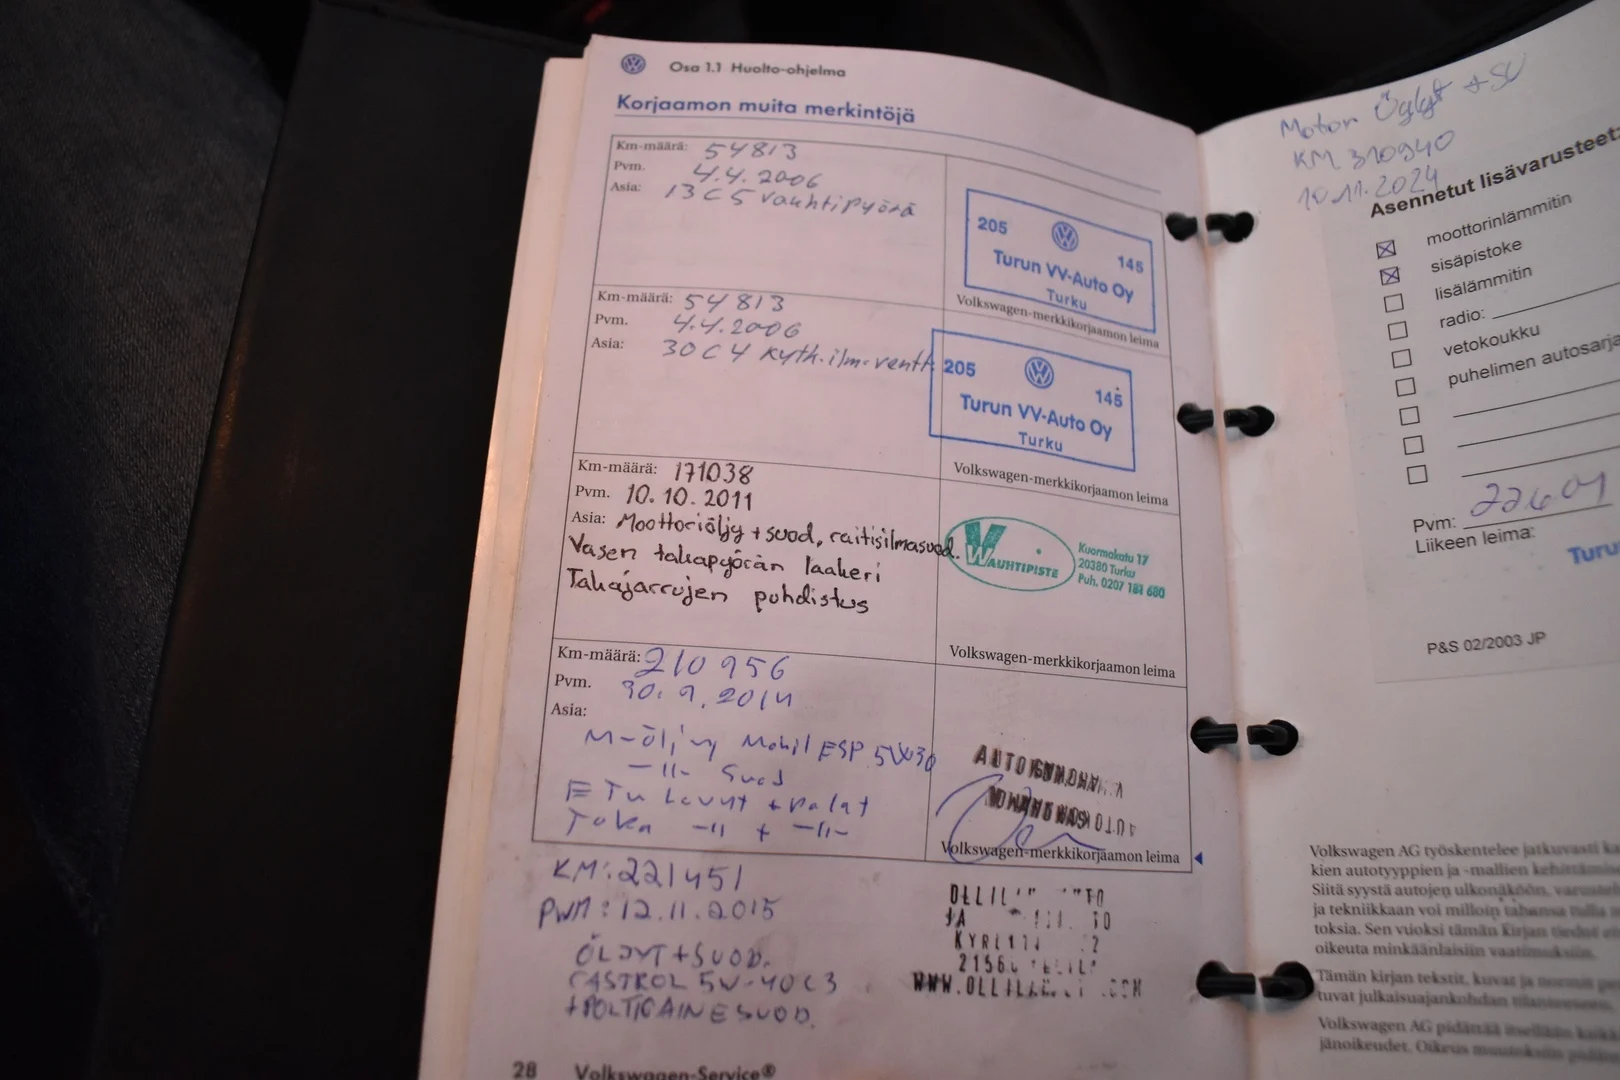 Osa 1.1 Huolto-ohjelma
Korjaamon muita merkintöjä
Km-määrä: 54813
Pvm. 4.4.2006
Asia: 13C5 Vauhtipyörä
205 145
Turun VV-Auto Oy
Turku
Volkswagen-merkkikorjaamon leima
Km-määrä: 54813
Pvm. 4.4.2006
Asia: 30C4 Kyth.ilm.ventt.
205 145
Turun VV-Auto Oy
Turku
Volkswagen-merkkikorjaamon leima
Km-määrä: 171038
Pvm. 10.10.2011
Asia: Moottoriöljy + suod, raitisilmasuod.
Vasen takapyörän laakeri
Takajarrujen puhdistus
WAUHTIPISTE
Kuormakatu 17
20380 Turku
Puh. 0207 181 680
Volkswagen-merkkikorjaamon leima
Km-määrä: 210956
Pvm. 30.9.2014
Asia:
M-öljy Mobil ESP 5W30
-11- Suod
ETu Levyt + Palat
Taka -11- + -11-
Volkswagen-merkkikorjaamon leima
KM: 221451
PWM: 12.11.2015
ÖLJYT+SUOD.
CASTROL 5W-40 C3
+POLTTOAINESUOD.
28 Volkswagen-Service®
Motor Öljyt + SU
KM 310940
10.11.2024
Asennetut lisävarusteet:
moottorinlämmitin
sisäpistoke
lisälämmitin
radio:
vetokoukku
puhelimen autosarja
Pvm:
Liikkeen leima:
Turu
P&S 02/2003 JP
Volkswagen AG työskentelee jatkuvasti
kien autotyyppien ja -mallien
Siitä syystä autojen ulkonäköön,
ja tekniikkaan voi milloin tahansa tulla
toksia. Sen vuoksi tämän Kirjan tiedot
oikeuta minkäänlaisiin vaatimuksiin.
Tämän kirjan tekstit, kuvat ja normit
tuvat julkaisuajankohdan tilanteeseen.
Volkswagen AG pidättää itsellään
jänoikeudet. Oikeus muutoksiin